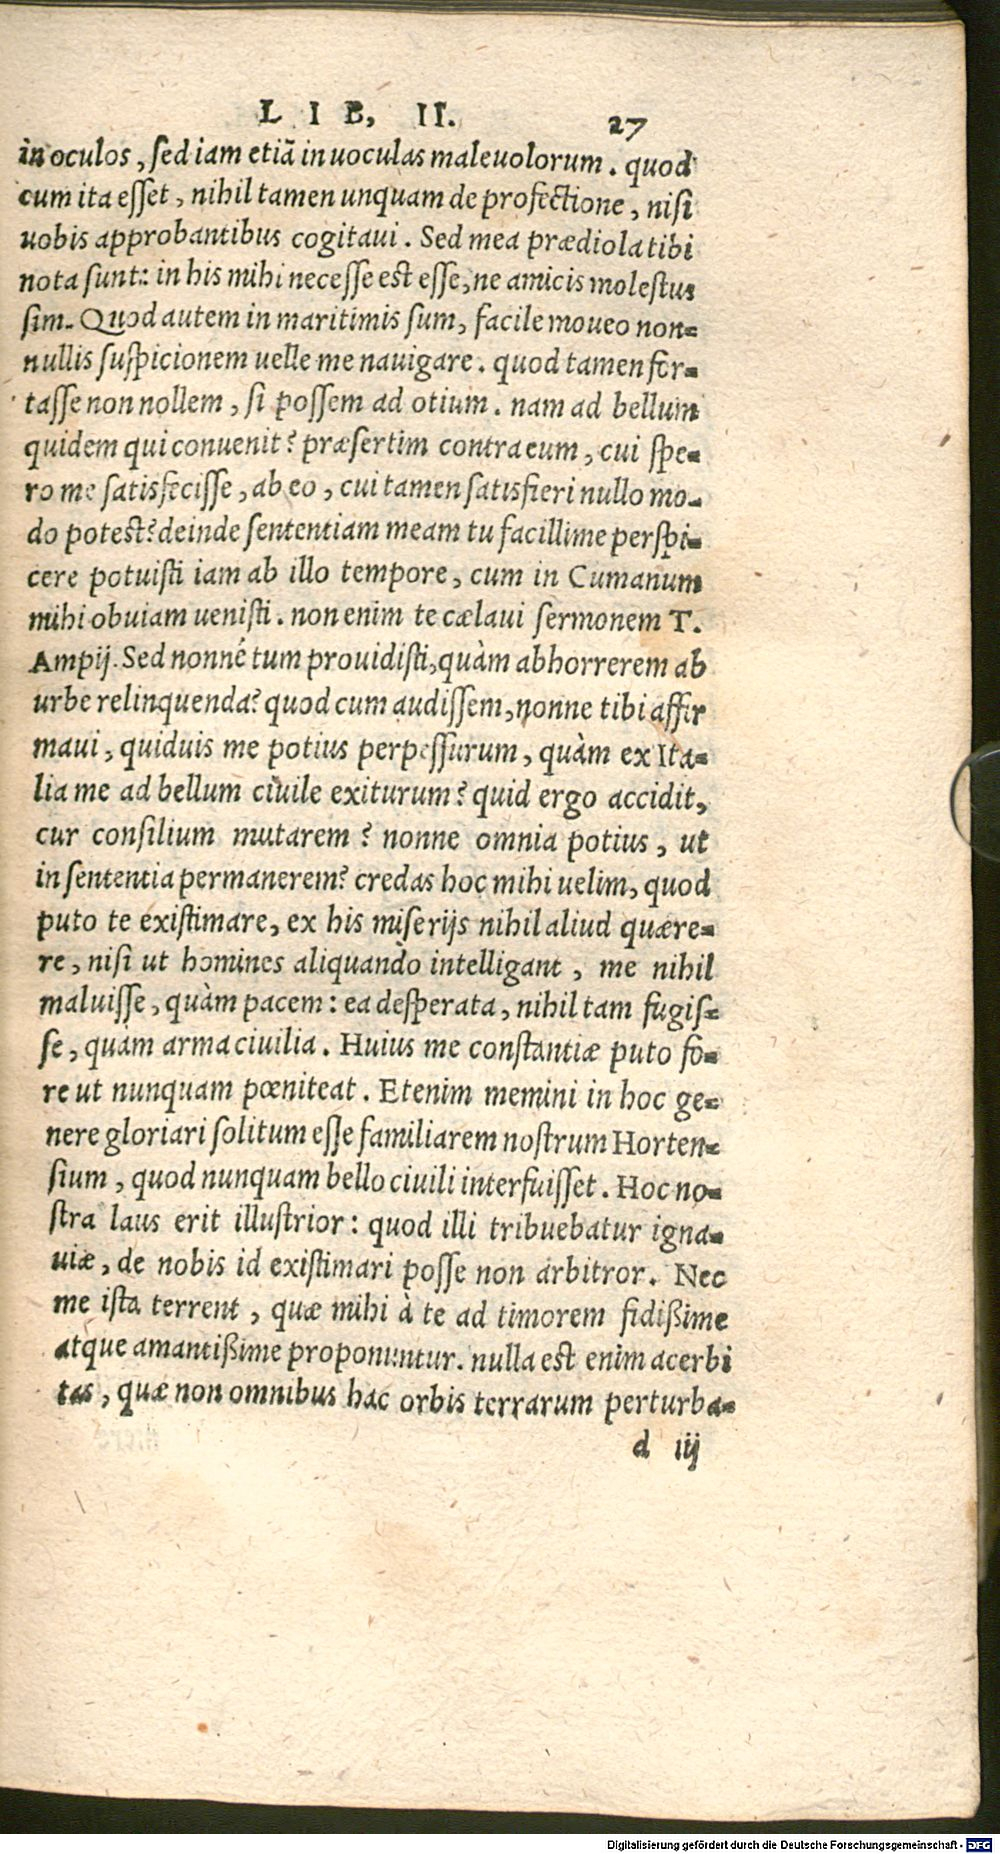 LIB, II. 27
in oculos, ſed iam etiã in uoculas maleuolorum. quod
cum ita eſſet, nihil tamen unquam de profectione, niſi
uobis approbantibus cogitaui. Sed mea prædiola tibi
nota ſunt: in his mihi neceſſe est eſſe, ne amicis moleſtus
ſim. Quod autem in maritimis ſum, facile moueo non=
nullis ſuſpicionem uelle me nauigare. quod tamen for=
taſſe non nollem, ſi poſſem ad otium. nam ad bellum
quidem qui conuenit? præſertim contra eum, cui ſpe=
ro me ſatisfeciſſe, ab eo, cui tamen ſatisfieri nullo mo=
do potest? deinde ſententiam meam tu facillime perſpi=
cere potuiſti iam ab illo tempore, cum in Cumanum
mihi obuiam ueniſti. non enim te cælaui ſermonem T.
Ampij. Sed nonné tum prouidiſti, quàm abhorrerem ab
urbe relinquenda? quod cum audiſſem, nonne tibi affir
maui, quiduis me potius perpeſſurum, quàm ex Ita=
lia me ad bellum ciuile exiturum? quid ergo accidit,
cur conſilium mutarem? nonne omnia potius, ut
in ſententia permanerem? credas hoc mihi uelim, quod
puto te exiſtimare, ex his miſerijs nihil aliud quære=
re, niſi ut homines aliquando intelligant, me nihil
maluiſſe, quàm pacem: ea deſperata, nihil tam fugiſ=
ſe, quàm arma ciuilia. Huius me conſtantiæ puto fo=
re ut nunquam pœniteat. Etenim memini in hoc ge=
nere gloriari ſolitum eſſe familiarem noſtrum Horten=
ſium, quod nunquam bello ciuili interfuiſſet. Hoc no=
ſtra laus erit illuſtrior: quod illi tribuebatur igna=
uiæ, de nobis id exiſtimari poſſe non arbitror. Nec
me iſta terrent, quæ mihi à te ad timorem fidißime
atque amantißime proponuntur. nulla est enim acerbi
tas, quæ non omnibus hac orbis terrarum perturba=
d iij
Digitalisierung gefördert durch die Deutsche Forschungsgemeinschaft - DFG